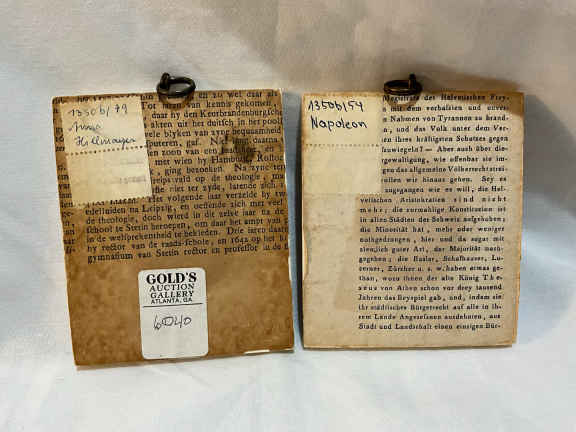 1350b/79
Anna
Hillmayer
en zu wel daar als
Tot zien van kennis gekomen,
daar hy den Keurbrandenburgisch
uit her duitsch in het pool
vele blyken van zyne bequaamheid
puteren, gaf. N daarna
een zoon van een en
met wien hy Hamburg, Rostok
ging bezoeken. Na zyne te
ipsi vald op de theologie,
fie niet ter zyde, latende zich
volgende jaar verzelde hy
edelluiden na Leipzig, en oefende zich met veel
de theologie, doch wierd in dit zelve jaar na de
school te Stetin beroepen, om daar het ampt van
in de welsprekenheid te bekleden. Drie jaren daarna
hy rector van de raads-schole, en 1642 op het
gymnasium van Stetin rector en professor in de
GOLD'S
AUCTION
GALLERY
ATLANTA, GA
6040
1350b/54
Napoleon
Magistrate des Helvetischen Frey-
mit dem verhaßten und unver-
Nahmen von Tyrannen zu brand-
, und das Volk unter dem Ver-
ihres kräftigsten Schutzes gegen
fzuwiegeln? — Aber auch über die
ergewaltigung, wie offenbar sie im-
gen das allgemeine Völkerrecht streit-
wollen wir hinaus gehen. Sey es
zugegangen wie es will, die Hel-
vetischen Aristokratien sind nicht
mehr; die vormahlige Konstitution ist
in allen Städten der Schweiz aufgehoben;
die Minorität hat, mehr oder weniger
nothgedrungen, hier und da sogar mit
ziemlich guter Art, der Majorität nach-
gegeben; die Basler, Schafhauser, Lu-
cerner, Zürcher u. s. w. haben etwas ge-
than, wozu ihnen der alte König The-
seus von Athen schon vor drey tausend
Jahren das Beyspiel gab, und, indem sie
ihr städtisches Bürgerrecht auf alle in ih-
rem Lande Angesessnen ausdehnten, aus
Stadt und Landschaft einen einzigen Bür-